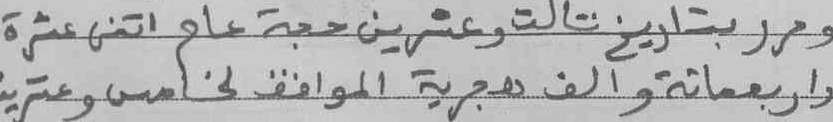 وحرر بتاريخ ثالث وعشرين حجة عام اثنى عشرة
واربعمائة والف هجرية الموافق لخامس وعشرين